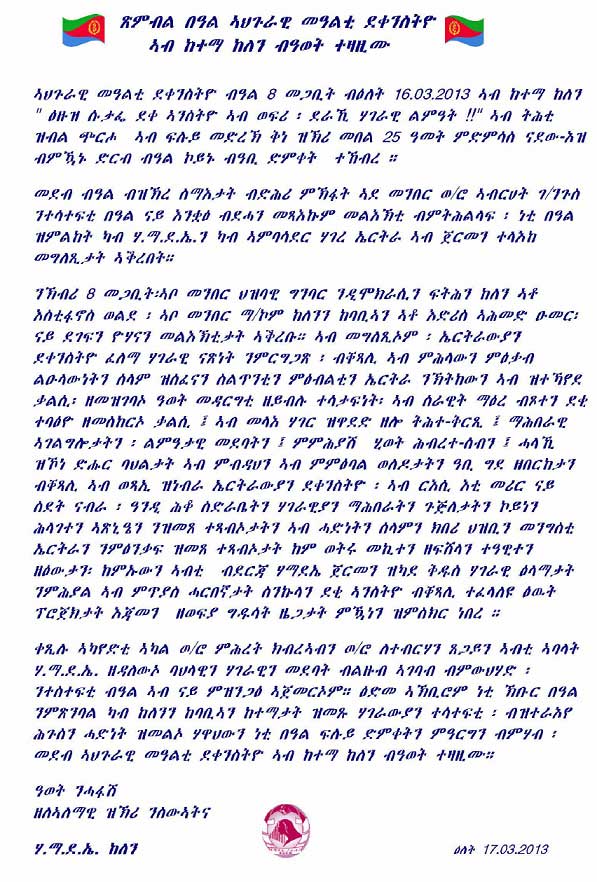 ጽምብል በዓል ኣህጉራዊ መዓልቲ ደቀንስትዮ
ኣብ ከተማ ከለን ብዓወት ተዛዚሙ
ኣህጉራዊ መዓልቲ ደቀንስትዮ ብዓል 8 መጋቢት ብዕለት 16.03.2013 ኣብ ከተማ ከለን
" ዕዙዝ ሱታፌ ደቀ ኣንስትዮ ኣብ ወፍሪ ፡ ደራኺ ሃገራዊ ልምዓት !!" ኣብ ትሕቲ
ዝብል ጭርሖ ኣብ ፍሉይ መድረኽ ቅነ ዝኽሪ መበል 25 ዓመት ምድምሳስ ናደው-እዝ
ብምዃኑ ድርብ ብዓል ኮይኑ ብዓቢ ድምቀት ተኸብረ ።
መደብ ብዓል ብዝኽረ ስማእታት ብድሕሪ ምኽፋት ኣደ መንበር ወ/ሮ ኣብርሀት ገ/ንጉስ
ንተሳተፍቲ በዓል ናይ እንቋዕ ብደሓን መጻእኩም መልእኽቲ ብምትሕልላፍ ፡ ነቲ በዓል
ዝምልከት ካብ ሃ.ማ.ደ.ኤ.ን ካብ ኣምባሳደር ሃገረ ኤርትራ ኣብ ጀርመን ተላእከ
መግለጺታት ኣቕረበት።
ንኽብሪ 8 መጋቢት፡ኣቦ መንበር ህዝባዊ ግንባር ንዲሞክራሲን ፍትሕን ከለን ኣቶ
እስቲፋኖስ ወልደ ፡ ኣቦ መንበር ማ/ኮም ከለንን ከባቢኣን ኣቶ እድሪስ ኣሕመድ ዑመር፡
ናይ ደገፍን ዮሃናን መልእኽቲታት ኣቕረቡ። ኣብ መግለጺኦም ፡ ኤርትራውያን
ደቀንስትዮ ፈለማ ሃገራዊ ናጽነት ንምርግጋጽ ፡ ብቐጻሊ ኣብ ምሕላውን ምዕቃብ
ልዑላውነትን ሰላም ዝሰፈናን ስልጥንቲን ምዕብልቲን ኤርትራ ንኽትከውን ኣብ ዝተኻየደ
ቃልሲ፡ ዘመዝገባኦ ዓወት መዳርግቲ ዘይብሉ ተሳታፍነት፡ ኣብ ሰራዊት ማዕረ ብጾተን ደቂ
ተባዕዮ ዘመስከርኦ ቃልሲ ፤ ኣብ መላእ ሃገር ዝዋደድ ዘሎ ትሕተ-ቅርጺ ፤ ማሕበራዊ
ኣገልግሎታትን ፡ ልምዓታዊ መደባትን ፤ ምምሕያሽ ሂወት ሕብረተ-ሰብን ፤ ሓላኺ
ዝኾነ ድሑር ባህልታት ኣብ ምብዳህን ኣብ ምምዕባል ወለዶታትን ዓቢ ግደ ዘበርከታን
ብቐጻሊ ኣብ ወጻኢ ዝነብራ ኤርትራውያን ደቀንስትዮ ፡ ኣብ ርእሲ እቲ መሪር ናይ
ስደት ናብራ ፡ ዓንዲ ሕቆ ስድራቤትን ሃገራዊያን ማሕበራትን ጉጅለታትን ኮይነን
ሕላገተን ኣጽኒዔን ንዝመጸ ተጻብኦታትን ኣብ ሓድነትን ሰላምን ክብሪ ህዝቢን መንግስቲ
ኤርትራን ንምዕንቃፍ ዝመጸ ተጻብኦታት ከም ወትሩ መኪተን ዘፍሸላን ተዓዊተን
ዘዕውታን፡ ከምኡውን ኣብቲ ብደርጃ ሃማደኤ ጀርመን ዝካየድ ቅዱስ ሃገራዊ ዕላማታት
ንምሕያል ኣብ ምጥያስ ሓርበኛታት ስንኩላን ደቂ ኣንስትዮ ብቐጻሊ ተፈላለዩ ዕዉት
ፕሮጀክታት እጃመን ዘወፍያ ግዱሳት ዜጋታት ምዃነን ዝምስክር ነበረ ።
ቀጺሉ ኣካየድቲ ኣካል ወ/ሮ ምሕረት ክብረኣብን ወ/ሮ ለተብርሃን ጸጋይን ኣብቲ ኣባላት
ሃ.ማ.ደ.ኤ. ዘዳለውኦ ባህላዊን ሃገራዊን መደባት ብልዙብ ኣገባብ ብምውህሃድ ፡
ንተሰተፍቲ ብዓል ኣብ ናይ ምዝንጋዕ ኣጀመርኦም። ዕድመ ኣኽቢሮም ነቲ ኽቡር በዓል
ንምጽንባል ካብ ከለንን ከባቢኣን ከተማታት ዝመጹ ሃገራውያን ተሳተፍቲ ፡ ብዝተራእየ
ሕጉስን ሓድነት ዝመልኦ ሃዋህውን ነቲ በዓል ፍሉይ ድምቀትን ምዓርግን ብምሃብ ፡
መደብ ኣህጉራዊ መዓልቲ ደቀንስትዮ ኣብ ከተማ ከለን ብዓወት ተዛዚሙ።
ዓወት ንሓፋሽ
ዘለኣለማዊ ዝኽሪ ንስውኣትና
ሃ.ማ.ደ.ኤ. ከለን
ዕለት 17.03.2013